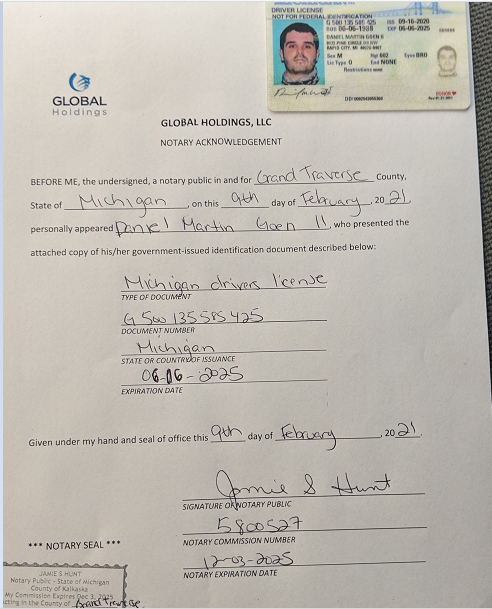 DRIVER LICENSE
NOT FOR FEDERAL IDENTIFICATION
G 500 135 585 425 ISS 09-16-2020
DOB 06-06-1989 EXP 06-06-2025
DANIEL MARTIN GOEN II
RAPID CITY, MI
Sex M Hgt 602 Eyes BRO
Lic Type O End NONE
Restrictions NONE
DONOR
GLOBAL
Holdings
GLOBAL HOLDINGS, LLC
NOTARY ACKNOWLEDGEMENT
BEFORE ME, the undersigned, a notary public in and for Grand Traverse County,
State of Michigan, on this 9th day of February, 2021,
personally appeared Daniel Martin Goen II, who presented the
attached copy of his/her government-issued identification document described below:
Michigan drivers license
TYPE OF DOCUMENT
G 500 135 585 425
DOCUMENT NUMBER
Michigan
STATE OR COUNTRY OF ISSUANCE
06-06-2025
EXPIRATION DATE
Given under my hand and seal of office this 9th day of February, 2021.
Jamie S Hunt
SIGNATURE OF NOTARY PUBLIC
5800527
NOTARY COMMISSION NUMBER
12-03-2025
NOTARY EXPIRATION DATE
*** NOTARY SEAL ***
JAMIE S HUNT
Notary Public - State of Michigan
County of Kalkaska
My Commission Expires Dec 3, 2025
cting in the County of Grand Traverse